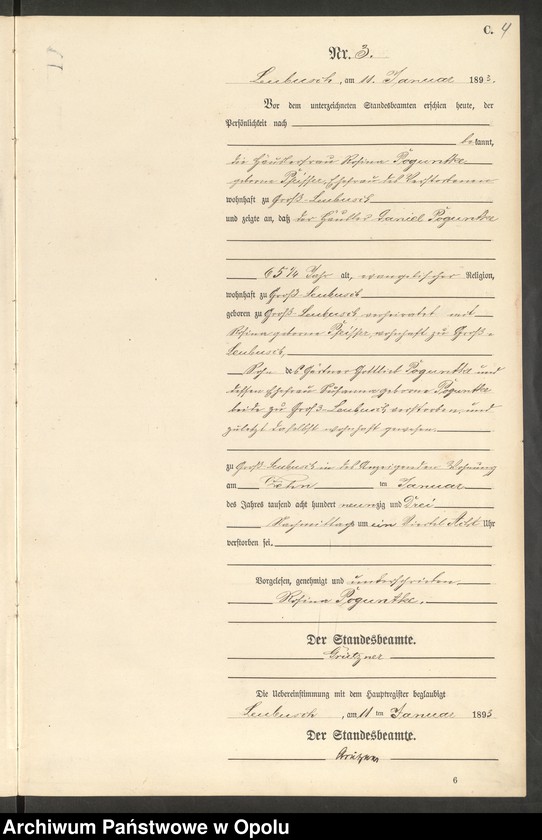 C. 4
Nr. 3.
Leubusch, am 11. Januar 1893.
Vor dem unterzeichneten Standesbeamten erschien heute, der
Persönlichkeit nach
bekannt,
die Häuslerfrau Rosina Poguntke
geborne Ehefrau des Verstorbenen
wohnhaft zu Groß-Leubusch
und zeigte an, daß der Häusler Daniel Poguntke
65 ¾ Jahr alt, evangelischer Religion,
wohnhaft zu Groß-Leubusch
geboren zu Groß-Leubusch, verheiratet mit
Rosina geborne wohnhaft zu Groß-
Leubusch,
Sohn des Gärtner Gottlieb Poguntke und
dessen Ehefrau Susanna geborne Poguntke
beide zu Groß-Leubusch verstorben und
zuletzt daselbst wohnhaft gewesen
zu Groß Leubusch in des Anzeigenden Wohnung
am Zehn ten Januar
des Jahres tausend acht hundert neunzig und Drei
Nachmittags um ein Viertel Acht Uhr
verstorben sei.
Vorgelesen, genehmigt und unterschrieben
Rosina Poguntke.
Der Standesbeamte.
Grützner
Die Uebereinstimmung mit dem Hauptregister beglaubigt
Leubusch, am 11 ten Januar 1893
Der Standesbeamte.
Grützner
6
Archiwum Państwowe w Opolu